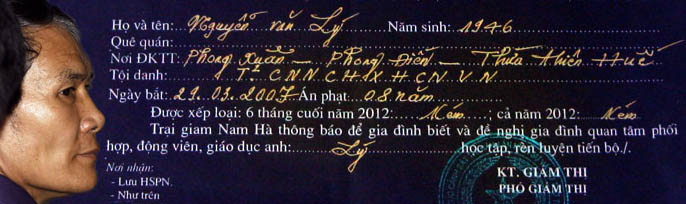 Họ và tên: Nguyễn văn Lý Năm sinh: 1946
Quê quán:
Nơi ĐKTT: Phong Xuân – Phong Điền – Thừa Thiên Huế
Tội danh: T² C N N C H X H C N V N
Ngày bắt: 29.03.2007 Án phạt 08 năm
Được xếp loại: 6 tháng cuối năm 2012: Kém; cả năm 2012: Kém
Trại giam Nam Hà thông báo để gia đình biết và đề nghị gia đình quan tâm phối
hợp, động viên, giáo dục anh: Lý học tập, rèn luyện tiến bộ./.
Nơi nhận:
- Lưu HSPN.
- Như trên
KT. GIÁM THỊ
PHÓ GIÁM THỊ